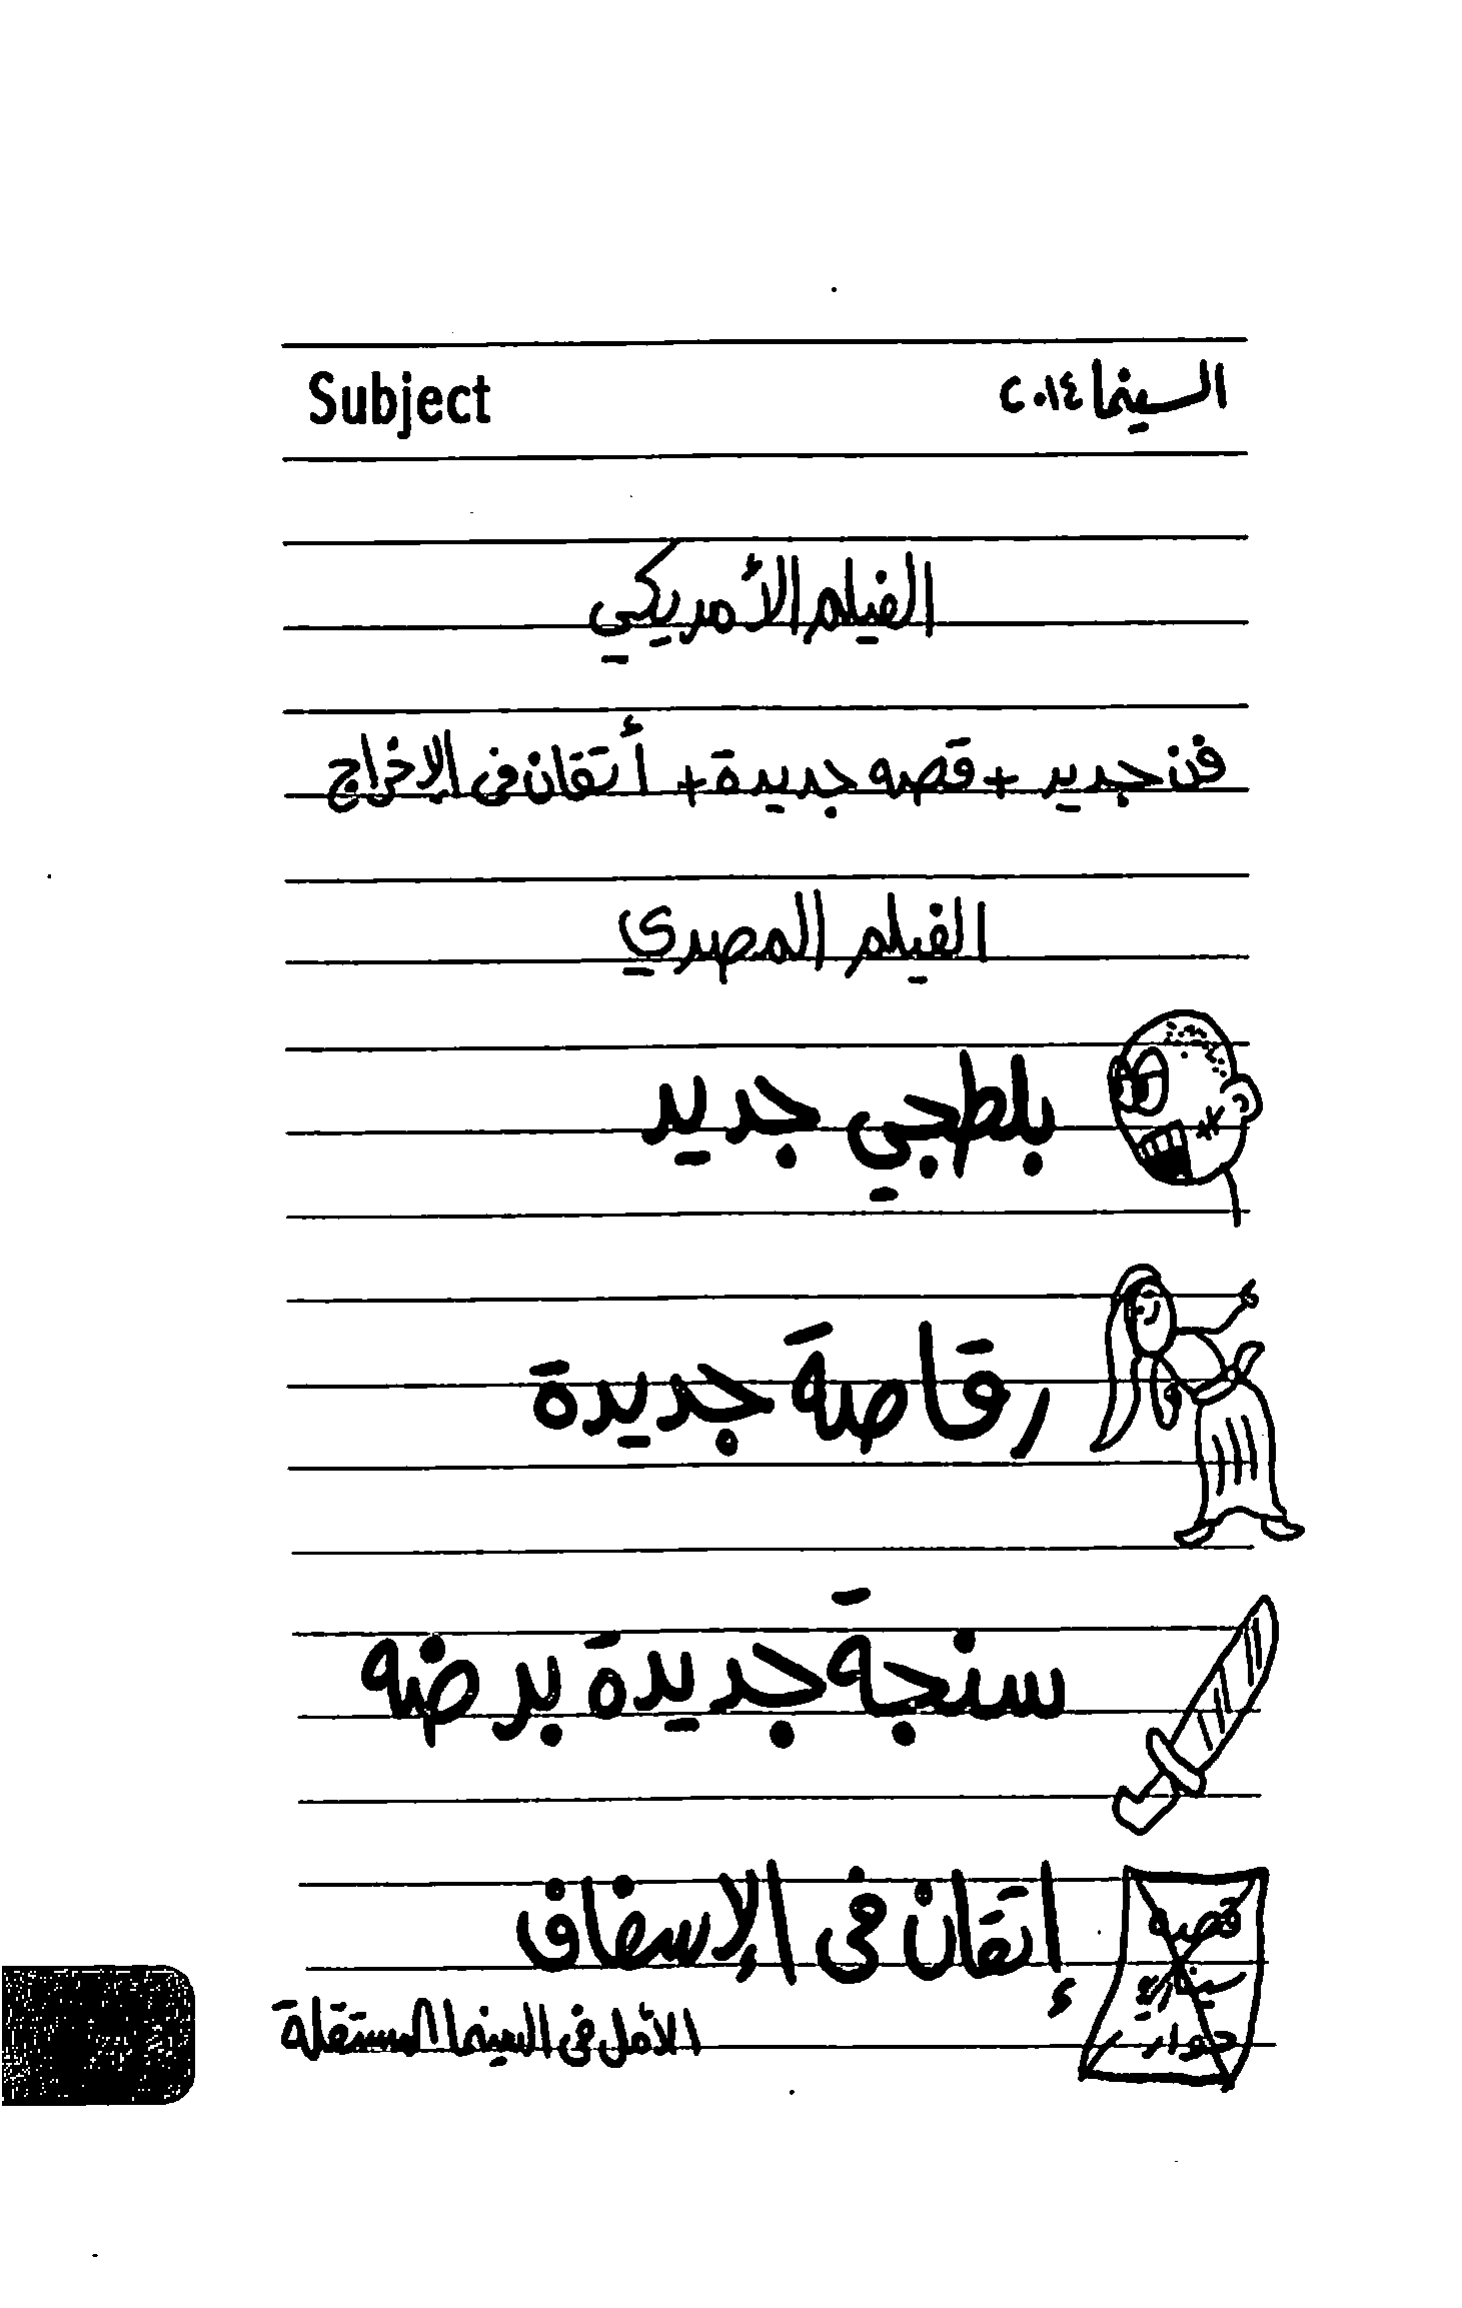 Subject السينما ٢٠١٤
الفيلم الأمريكي
فن جديد + قصه جديدة + أتقان فى الإخراج
الفيلم المصري
بلطجي جديد
رقاصة جديدة
سنجة جديدة برضه
إتقان فى الإسفاف
قصه
سيناريو
حوار
الأمل فى السينما المستقلة